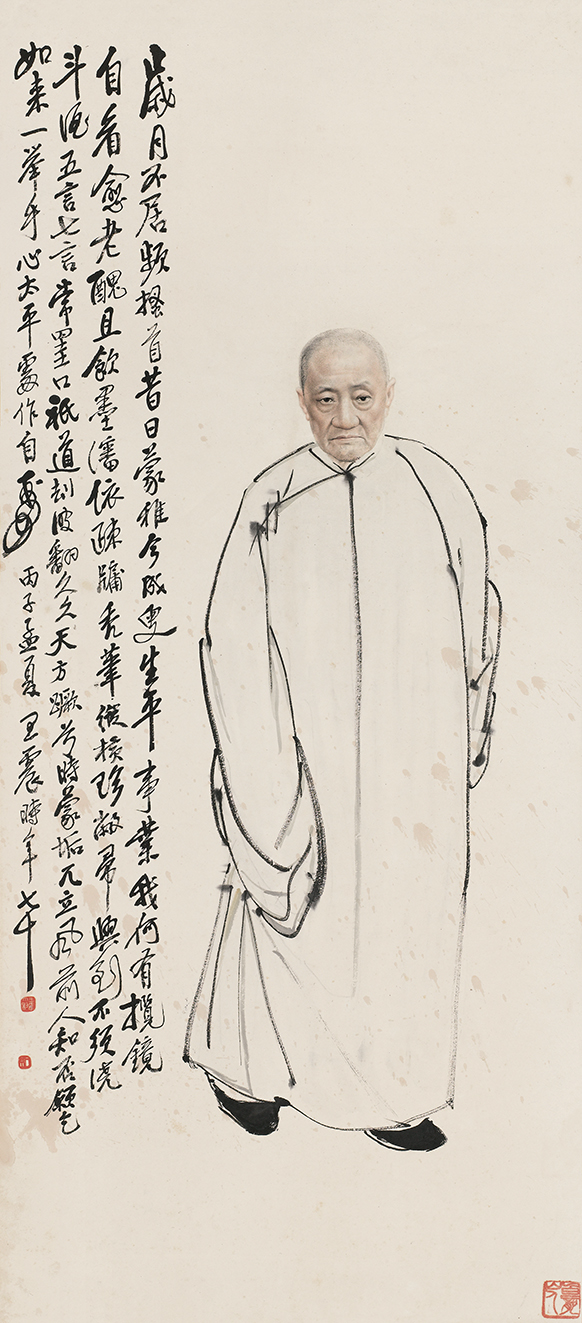 歲月不居頻搔首昔日蒙稚今成叟生平事業我何有攬鏡
自看愈老醜且飲墨瀋依疎牖禿筆縱橫珍敝帚興到不須澆
斗酒五言七言常罣口祇道刦波翻久久天方蹶兮時蒙垢兀立風前人知否願乞
如來一舉手心太平處作自壽 丙子孟夏 王震時年七十